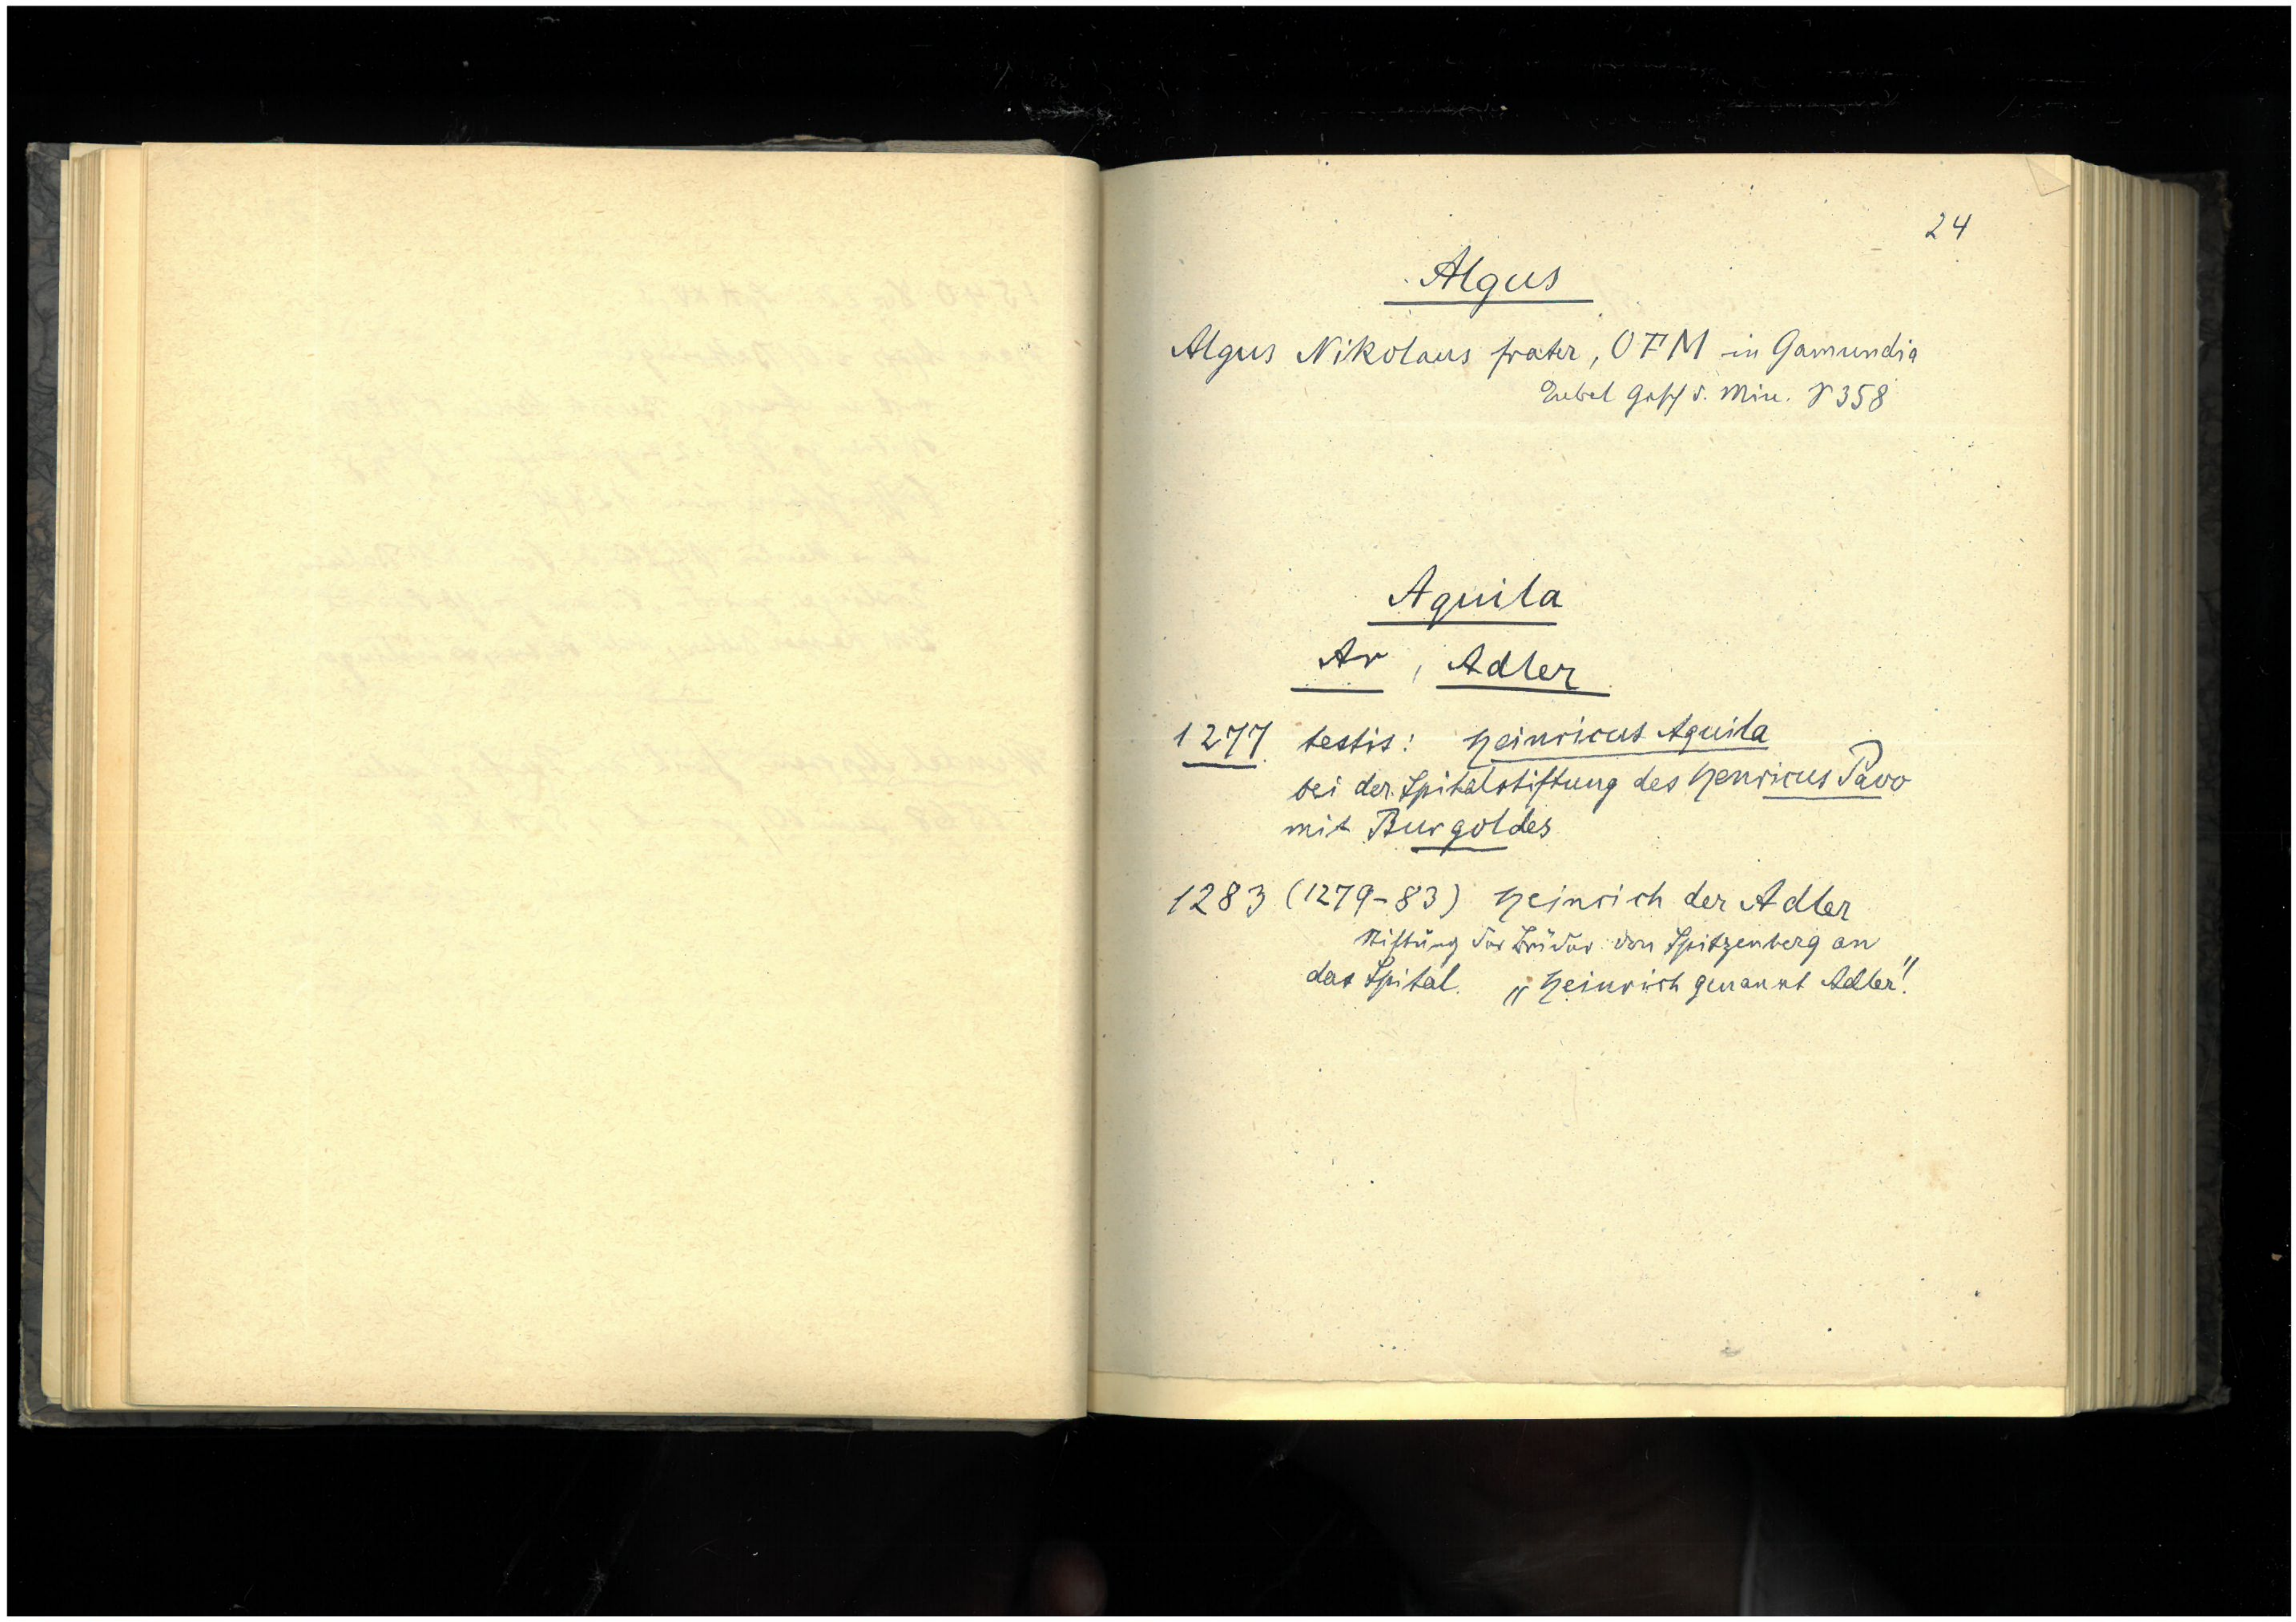 24
Algus
Algus Nikolaus frater, OFM in Gamundia
Eubel Gesch d. Min. S 358
Aquila
Ar, Adler
1277 testis: Heinricus Aquila
bei der Spitalstiftung des Henricus Pavo
mit Burgoldes
1283 (1279-83) Heinrich der Adler
Stiftung der Brüder von Spitzenberg an
das Spital. „Heinrich genannt Adler".